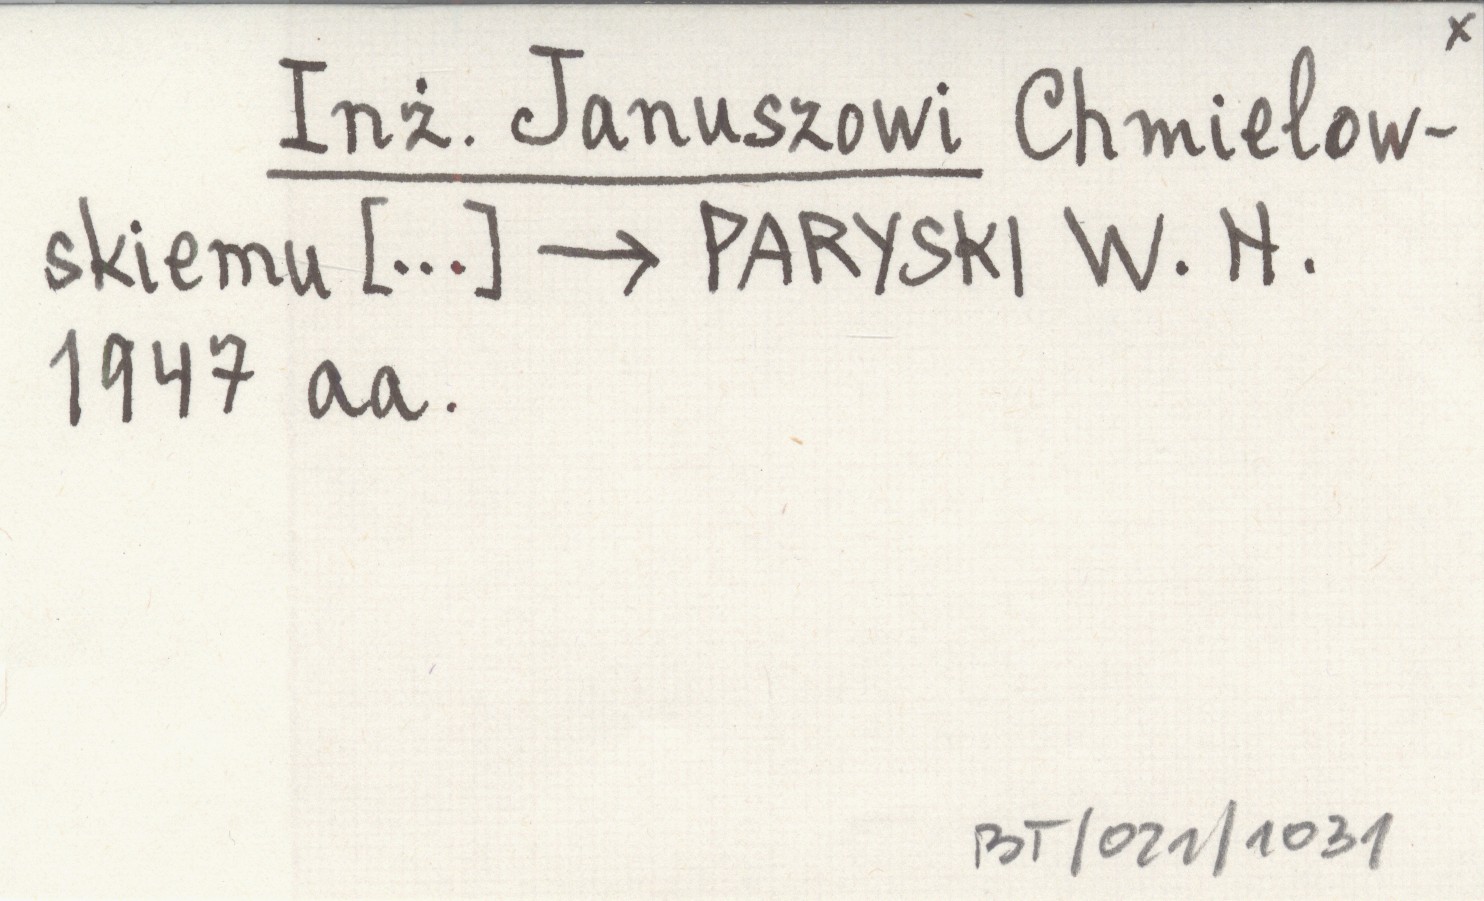 x
Inż. Januszowi Chmielow-
skiemu [...] → PARYSKI W. H.
1947 aa.
BT/021/1031